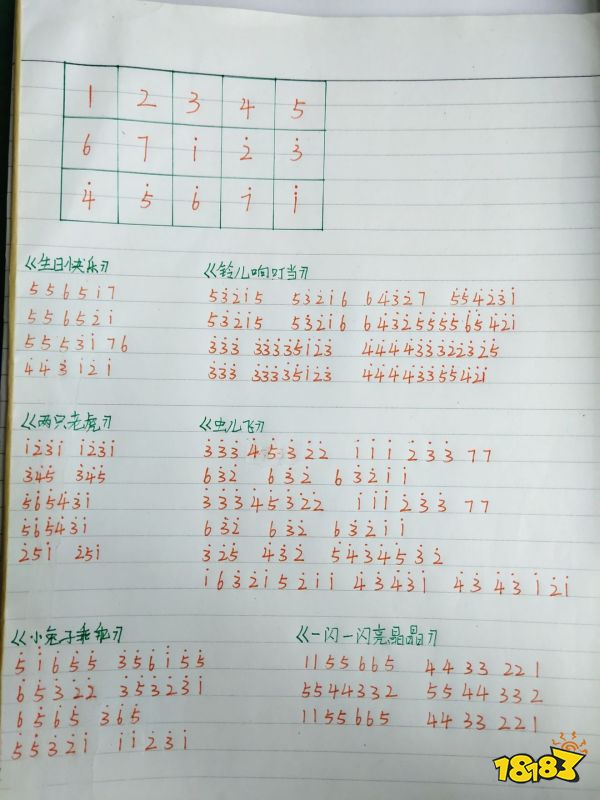 1 2 3 4 5
6 7 i̇ 2̇ 3̇
4̇ 5̇ 6̇ 7̇ i̇
《生日快乐》
5 5 6 5 i̇ 7
5 5 6 5 2̇ i̇
5 5 5̇ 3̇ i̇ 7 6
4̇ 4̇ 3̇ i̇ 2̇ i̇
《铃儿响叮当》
5 3̇ 2̇ i̇ 5 5 3̇ 2̇ i̇ 6 6 4̇ 3̇ 2̇ 7 5̇ 5̇ 4̇ 2̇ 3̇ i̇
5 3̇ 2̇ i̇ 5 5 3̇ 2̇ i̇ 6 6 4̇ 3̇ 2̇ 5̇ 5̇ 5̇ 5̇ 6̇ 5̇ 4̇ 2̇ i̇
3̇ 3̇ 3̇ 3̇ 3̇ 3̇ 3̇ 5̇ i̇ 2̇ 3̇ 4̇ 4̇ 4̇ 4̇ 3̇ 3̇ 3̇ 2̇ 2̇ 3̇ 2̇ 5̇
3̇ 3̇ 3̇ 3̇ 3̇ 3̇ 3̇ 5̇ i̇ 2̇ 3̇ 4̇ 4̇ 4̇ 4̇ 3̇ 3̇ 5̇ 5̇ 4̇ 2̇ i̇
《两只老虎》
i̇ 2̇ 3̇ i̇ i̇ 2̇ 3̇ i̇
3̇ 4̇ 5̇ 3̇ 4̇ 5̇
5̇ 6̇ 5̇ 4̇ 3̇ i̇
5̇ 6̇ 5̇ 4̇ 3̇ i̇
2̇ 5 i̇ 2̇ 5 i̇
《虫儿飞》
3̇ 3̇ 3̇ 4̇ 5̇ 3̇ 2̇ 2̇ i̇ i̇ i̇ 2̇ 3̇ 3̇ 7 7
6 3̇ 2̇ 6 3̇ 2̇ 6 3̇ 2̇ i̇ i̇
3̇ 3̇ 3̇ 4̇ 5̇ 3̇ 2̇ 2̇ i̇ i̇ i̇ 2̇ 3̇ 3̇ 7 7
6 3̇ 2̇ 6 3̇ 2̇ 6 3̇ 2̇ i̇ i̇
3̇ 2̇ 5̇ 4̇ 3̇ 2̇ 5̇ 4̇ 3̇ 4̇ 5̇ 3̇ 2̇
i̇ 6 3̇ 2̇ i̇ 5 2̇ i̇ i̇ 4̇ 3̇ 4̇ 3̇ i̇ 4̇ 3̇ 4̇ 3̇ i̇ 2̇ i̇
《小兔子乖乖》
5̇ i̇ 6̇ 5̇ 5̇ 3̇ 5̇ 6̇ i̇ 5̇ 5̇
6̇ 5̇ 3̇ 2̇ 2̇ 3̇ 5̇ 3̇ 2̇ 3̇ i̇
6̇ 5̇ 6̇ 5̇ 3̇ 6̇ 5̇
5̇ 5̇ 3̇ 2̇ i̇ i̇ i̇ 2̇ 3̇ i̇
《一闪一闪亮晶晶》
1 1 5 5 6 6 5 4 4 3 3 2 2 1
5 5 4 4 3 3 2 5 5 4 4 3 3 2
1 1 5 5 6 6 5 4 4 3 3 2 2 1
18183